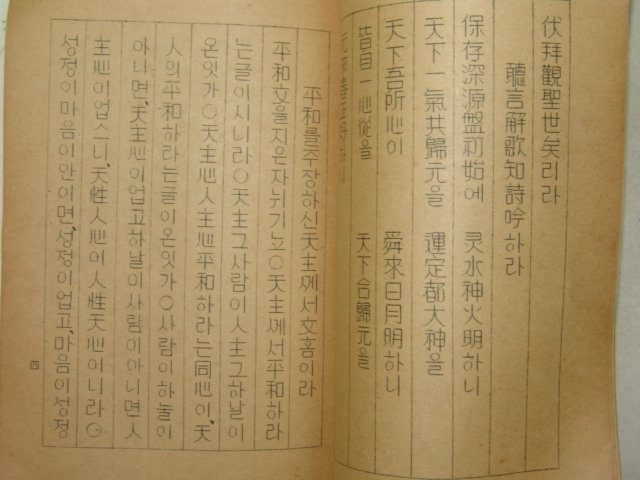 伏拜觀聖世矣리라
聽言解歌知詩吟하라
保存深源盤初始에 灵水神火明하니
天下一氣共歸元을 運定都大神을
天下吾所心이 舜來日月明하니
皆自一心從을 天下合歸元을
平和를주장하신天主께서文홈이라
平和文을지은자뉘기는○天主께서平和하라
는글이시니라○天主그사람이人主그하날이
온잇가○天主心人主心平和하라는同心이、天
人의平和하라는글이온잇가○사람이하늘이
아니면、天主心이업고하날이사람이아니면人
主心이업스니、天性人心이人性天心이니라○
성정이마음이안이면、성정이업고、마음이성정
四